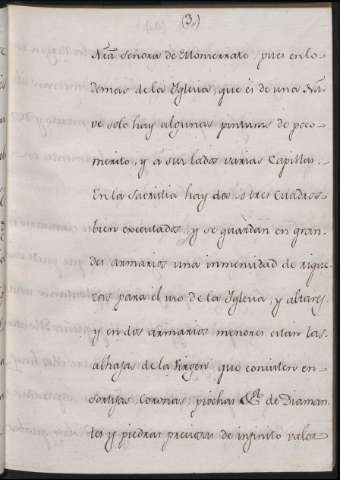 (3.)
Nrã señora de Monserrate, pues en lo
demas de la Iglesia, que és de una Na-
ve solo hay algunas pinturas de poco
merito, y á sus lados varias Capillas.
En la Sacristia hay dos, ó tres Cuadros
bien executados, y se guardan en gran-
des armarios una inmensidad de rique-
zas para el uso de la Iglesia, y altares,
y en dos armarios menores estan las
alhajas de la Virgen, que consisten en
sortijas, Coronas, piochas &c. de Diaman-
tes y piedras preciosas de infinito valor